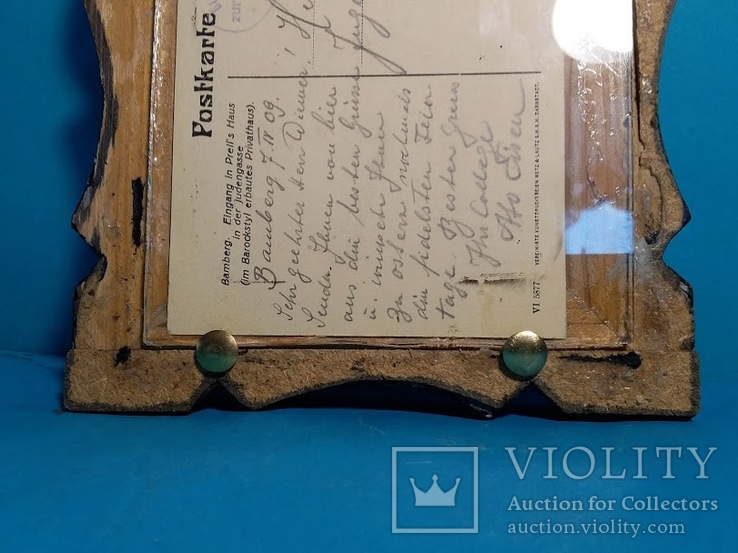 Postkarte
Bamberg. Eingang in Prell's Haus
in der Judengasse
(im Barockstyl erbautes Privathaus).
Bamberg 7. IV 09.
Sehr geehrter Herr Diemer!
Sende Ihnen von hier
aus die besten Grüsse
u. wünsche Ihnen
zu Ostern
die fidelsten Feier
tage. Besten Gruss
Ihr College
VI 5877
VEREINIGTE KUNSTDRUCKEREIEN METZ & LAUTZ G.M.B.H. DARMSTADT.
VIOLITY
Auction for Collectors
auction.violity.com